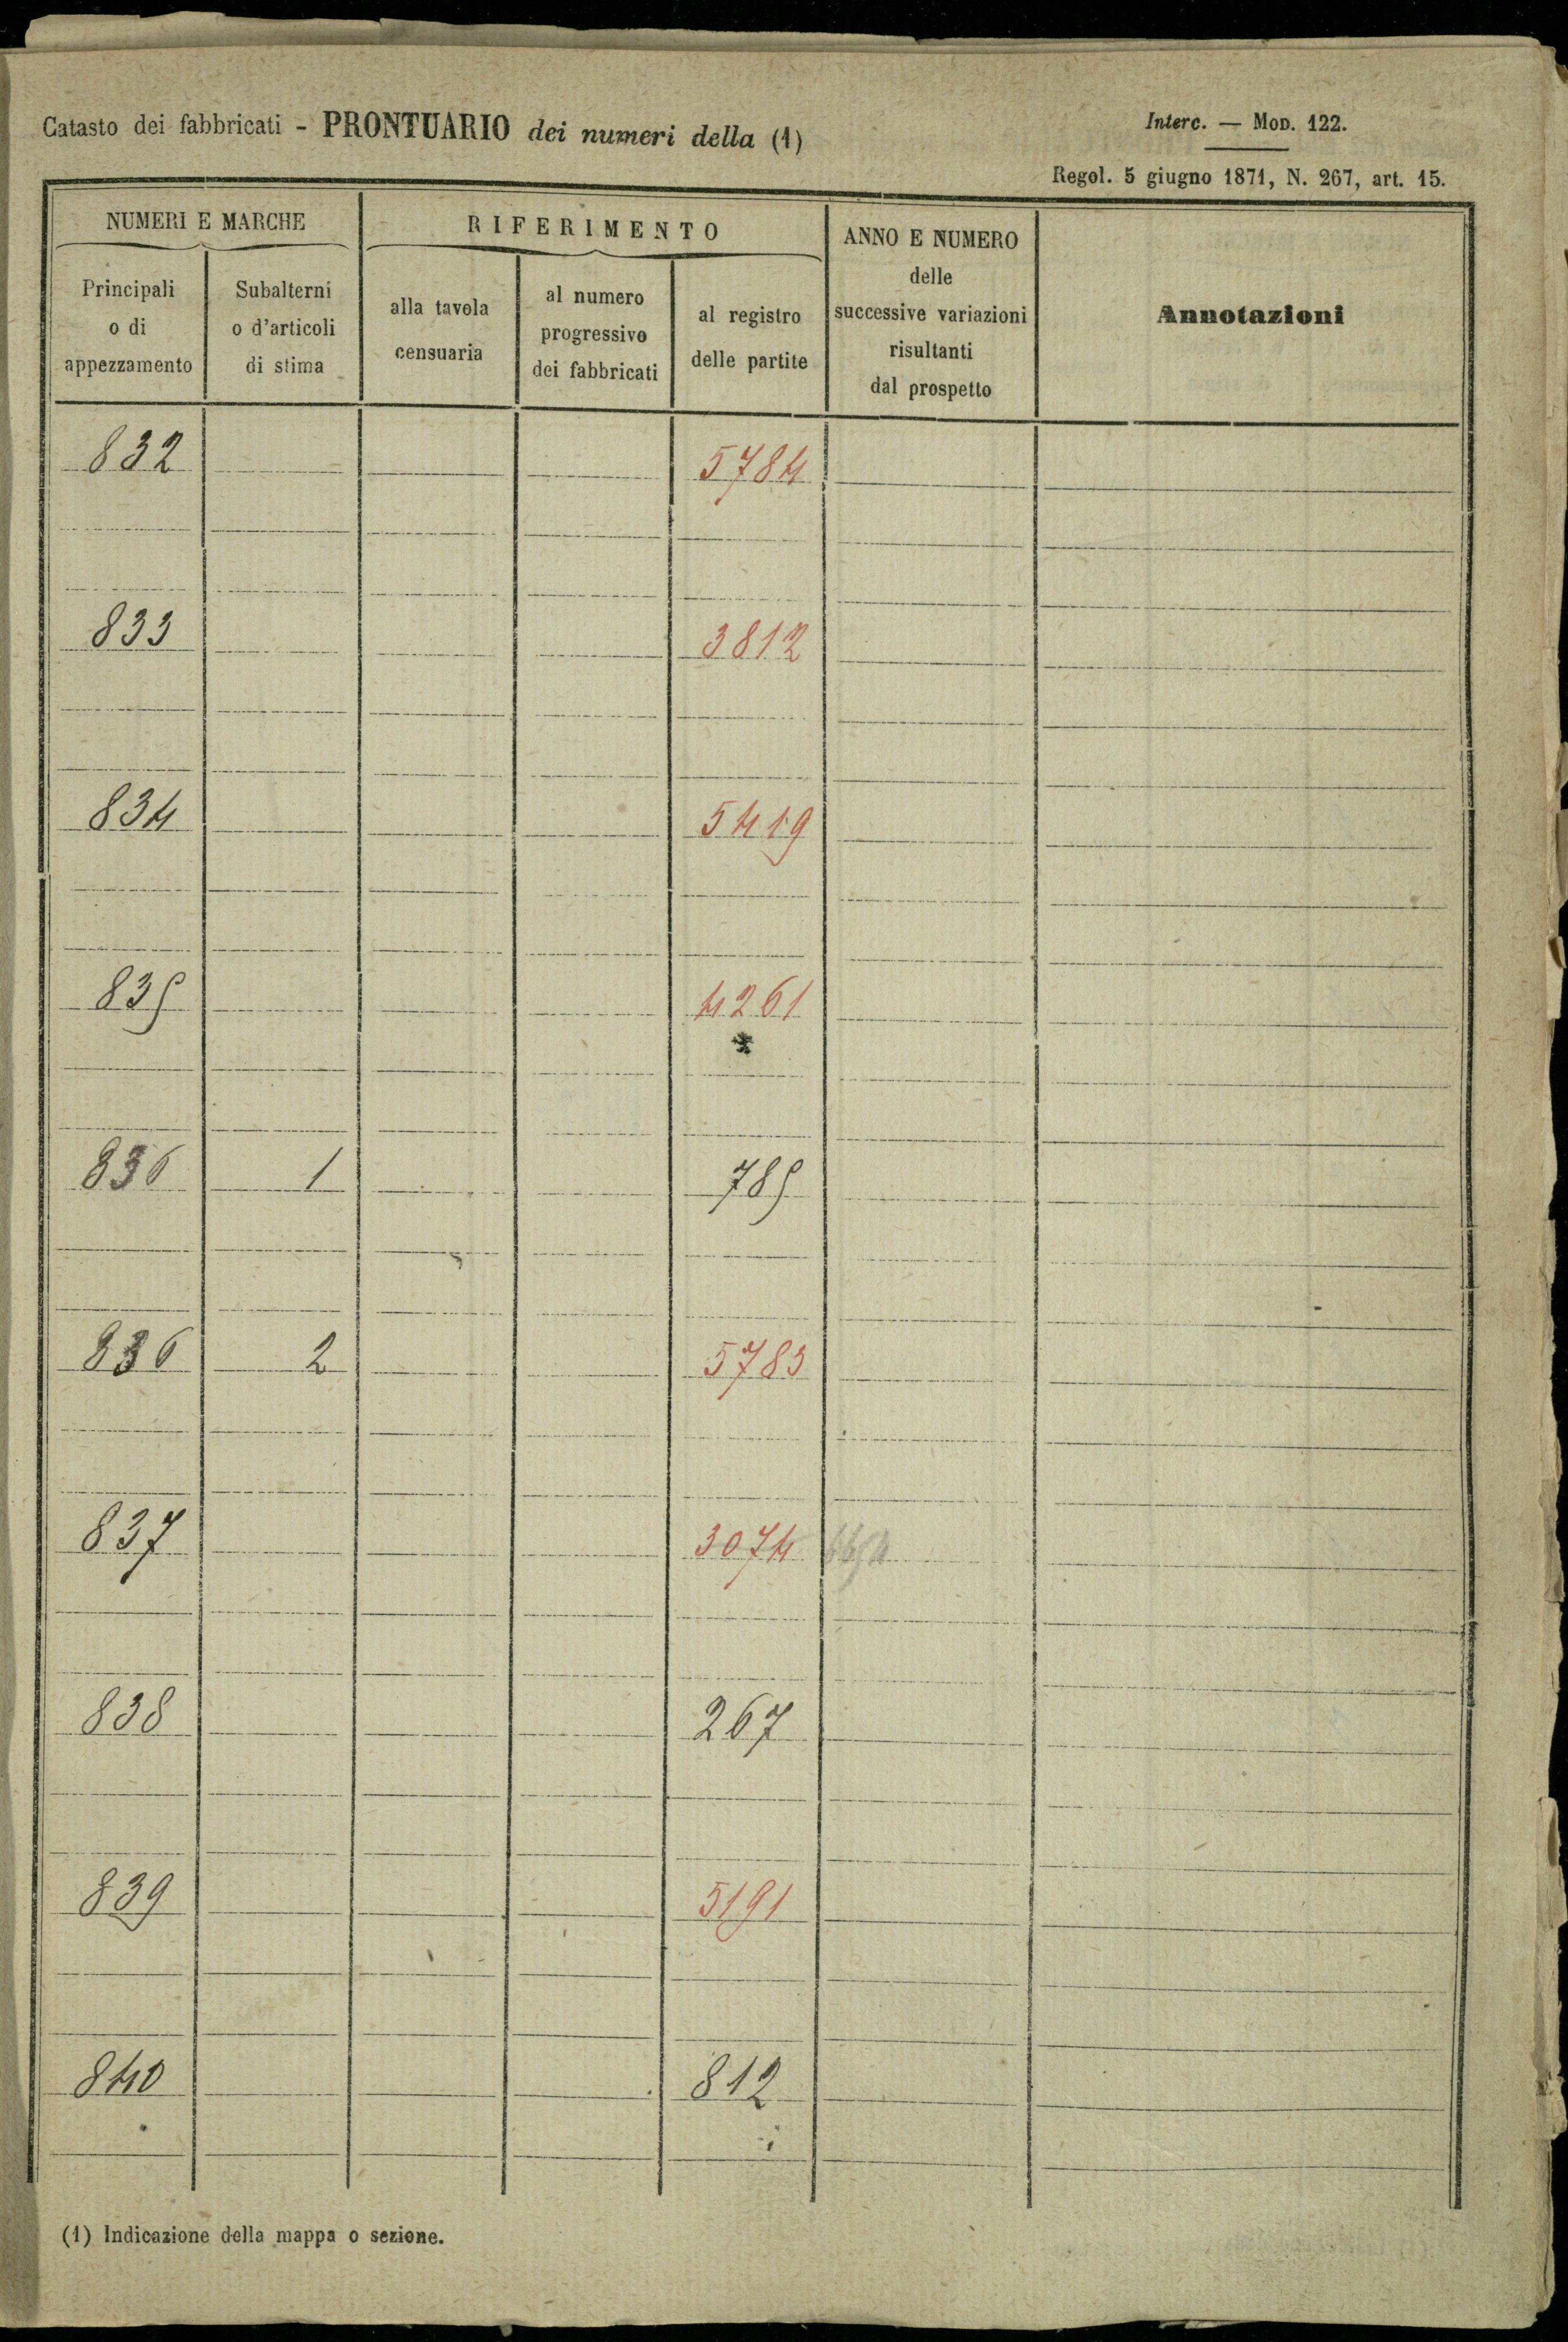 Catasto dei fabbricati - PRONTUARIO dei numeri della (1)
Interc. — MOD. 122.
Regol. 5 giugno 1871, N. 267, art. 15.
NUMERI E MARCHE
RIFERIMENTO
ANNO E NUMERO
delle
successive variazioni
risultanti
dal prospetto
Annotazioni
Principali
o di
appezzamento
Subalterni
o d'articoli
di stima
alla tavola
censuaria
al numero
progressivo
dei fabbricati
al registro
delle partite
832 5784
833 3812
834 5419
835 4261
836 1 785
836 2 5783
837 3074
838 267
839 5191
840 812
(1) Indicazione della mappa o sezione.